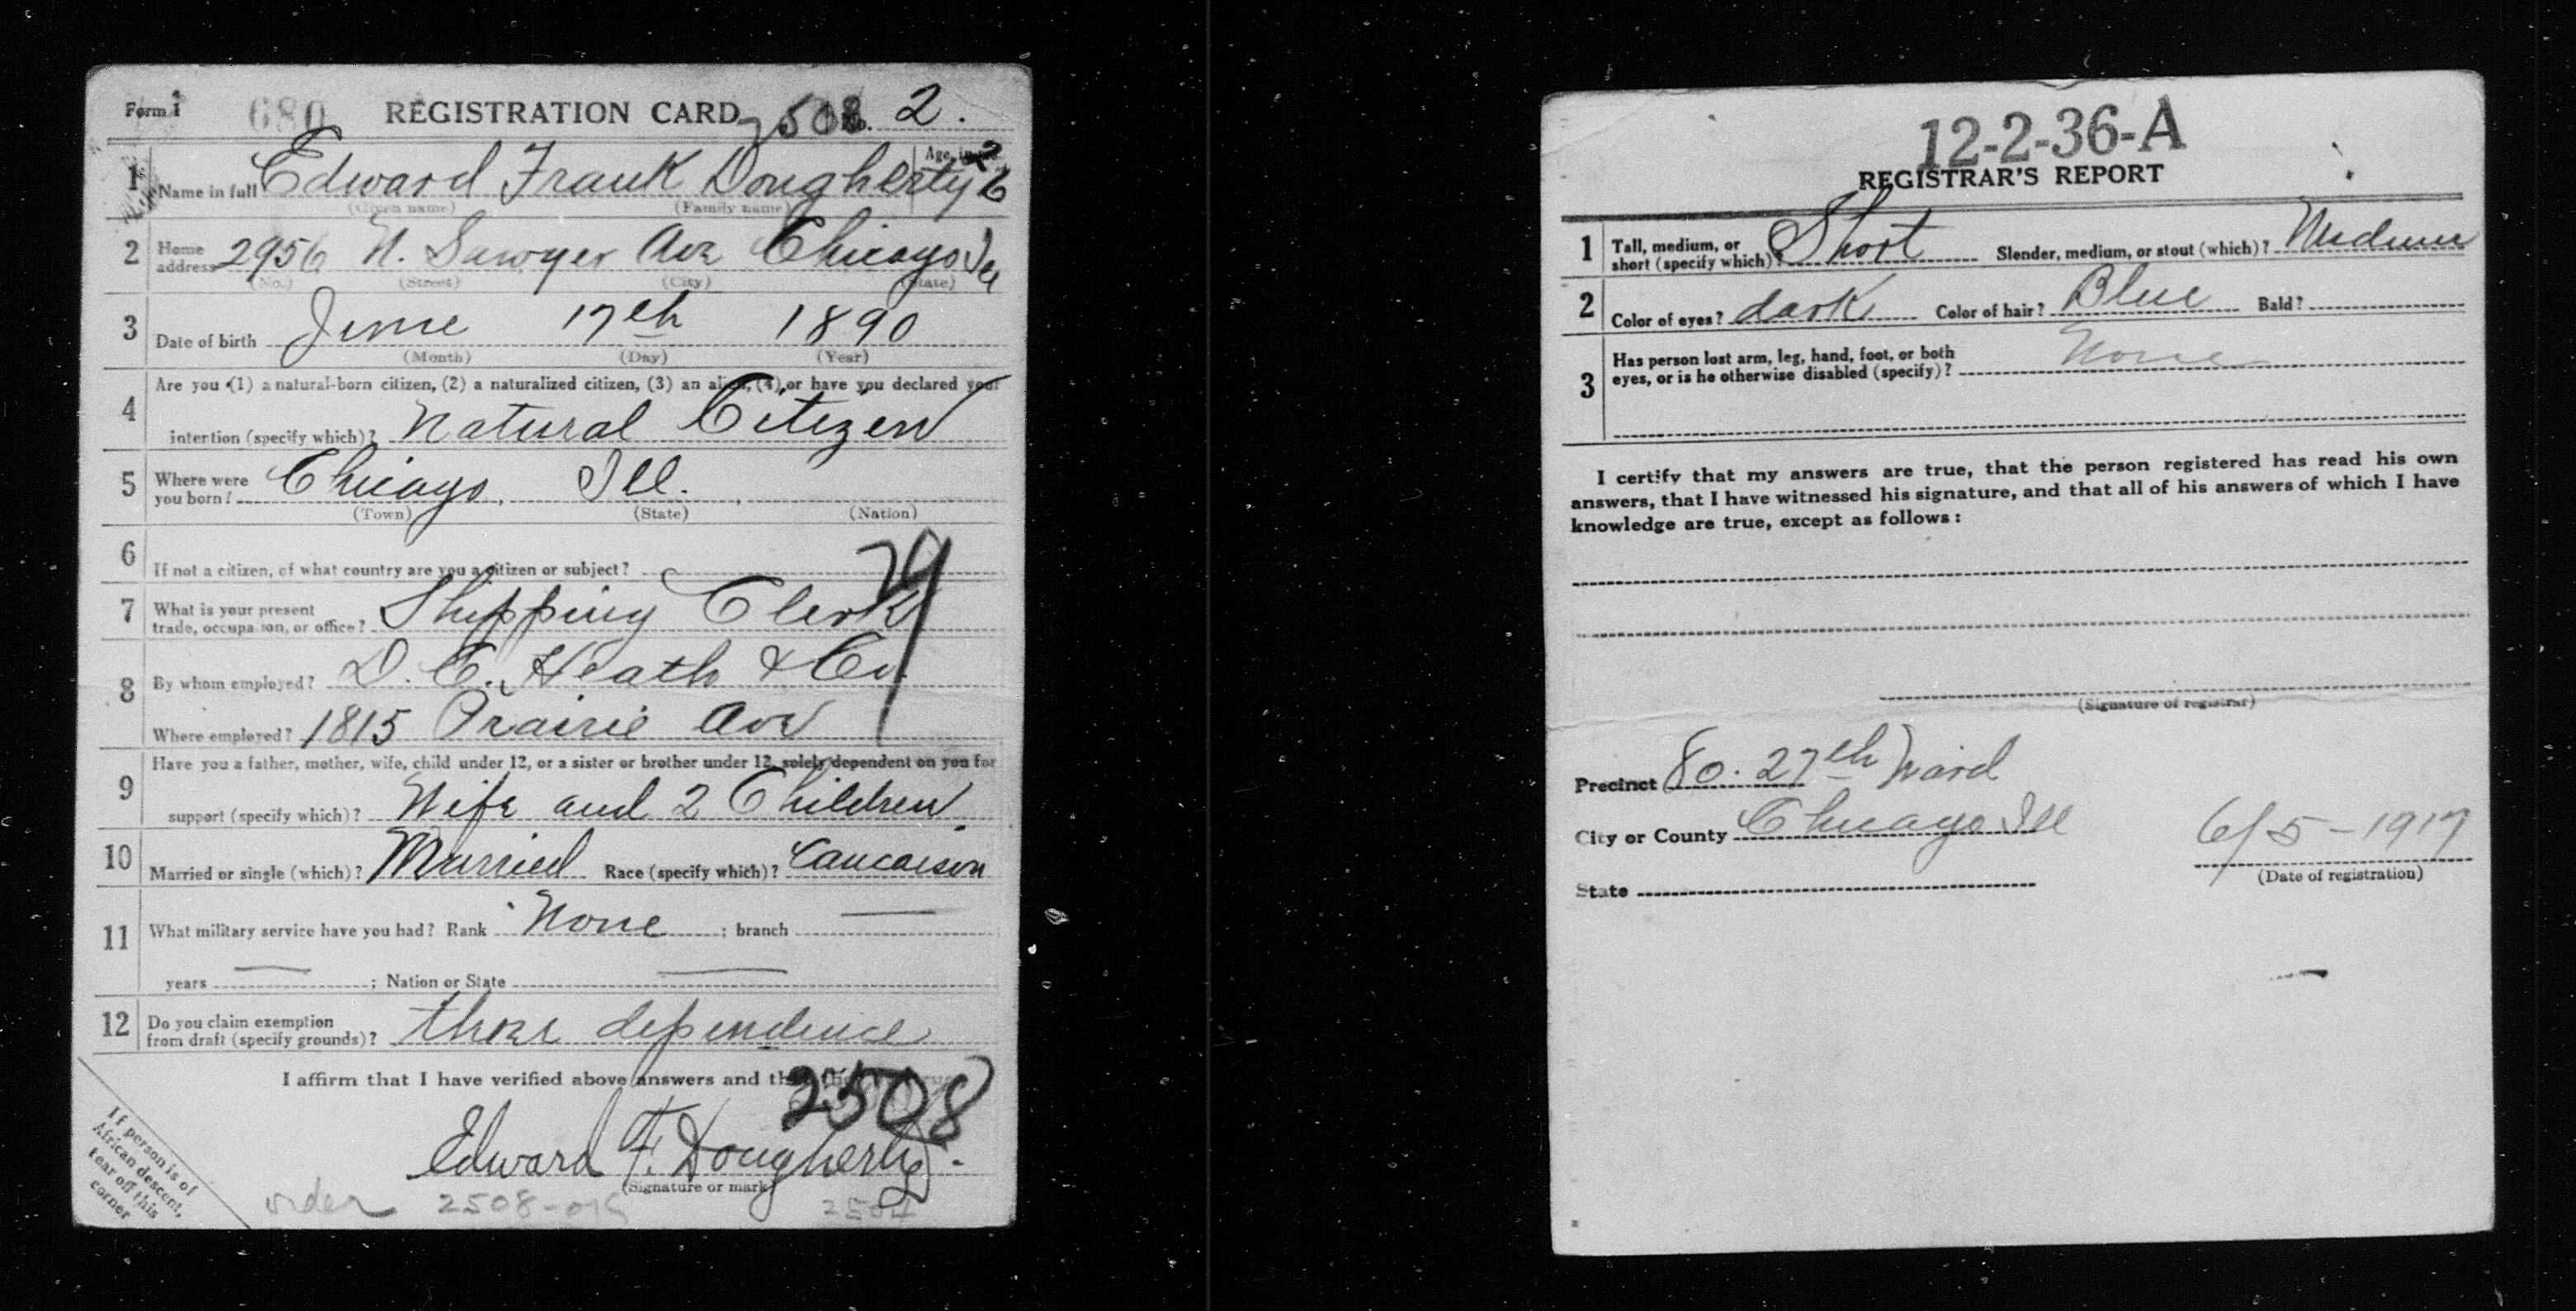 Form 1 680 REGISTRATION CARD 2508 No. 2.
1 Name in full Edward Frank Dougherty Age, in yrs. 26
(Given name) (Family name)
2 Home address 2956 N. Sawyer Ave Chicago Ill
(No.) (Street) (City) (State)
3 Date of birth June 17th 1890
(Month) (Day) (Year)
4 Are you (1) a natural-born citizen, (2) a naturalized citizen, (3) an alien, (4) or have you declared your
intention (specify which)? Natural Citizen
5 Where were you born? Chicago, Ill.
(Town) (State) (Nation)
6 If not a citizen, of what country are you a citizen or subject?
7 What is your present trade, occupation, or office? Shipping Clerk
8 By whom employed? D. C. Heath & Co.
Where employed? 1815 Prairie Ave
9 Have you a father, mother, wife, child under 12, or a sister or brother under 12, solely dependent on you for
support (specify which)? Wife and 2 Children
10 Married or single (which)? Married Race (specify which)? Caucasion
11 What military service have you had? Rank None ; branch
years ; Nation or State
12 Do you claim exemption from draft (specify grounds)? dependence
I affirm that I have verified above answers and that
2508
Edward F. Dougherty.
(Signature or mark)
order 2508-OK
If person is of
African descent,
tear off this
corner
12-2-36-A
REGISTRAR'S REPORT
1 Tall, medium, or short (specify which)? Short Slender, medium, or stout (which)? Medium
2 Color of eyes? dark Color of hair? Blue Bald?
3 Has person lost arm, leg, hand, foot, or both
eyes, or is he otherwise disabled (specify)? None
I certify that my answers are true, that the person registered has read his own
answers, that I have witnessed his signature, and that all of his answers of which I have
knowledge are true, except as follows:
(Signature of registrar)
Precinct 80. 27th Ward
City or County Chicago Ill 6/5-1917
State (Date of registration)